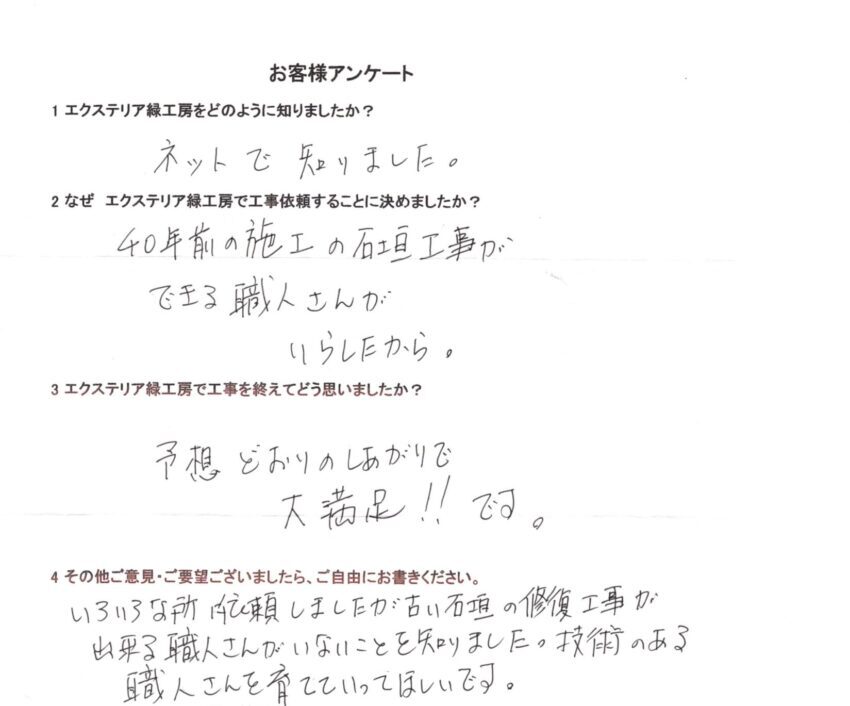 お客様アンケート
1 エクステリア緑工房をどのように知りましたか？
ネットで 知りました。
2 なぜ　エクステリア緑工房で工事依頼することに決めましたか？
40年前の施工の石垣工事が
できる職人さんが
いらしたから。
3 エクステリア緑工房で工事を終えてどう思いましたか？
予想どおりのしあがりで
大満足!!です。
4 その他ご意見・ご要望ございましたら、ご自由にお書きください。
いろいろな所依頼しましたが古い石垣の修復工事が
出来る職人さんがいないことを知りました。技術のある
職人さんを育てていってほしいです。